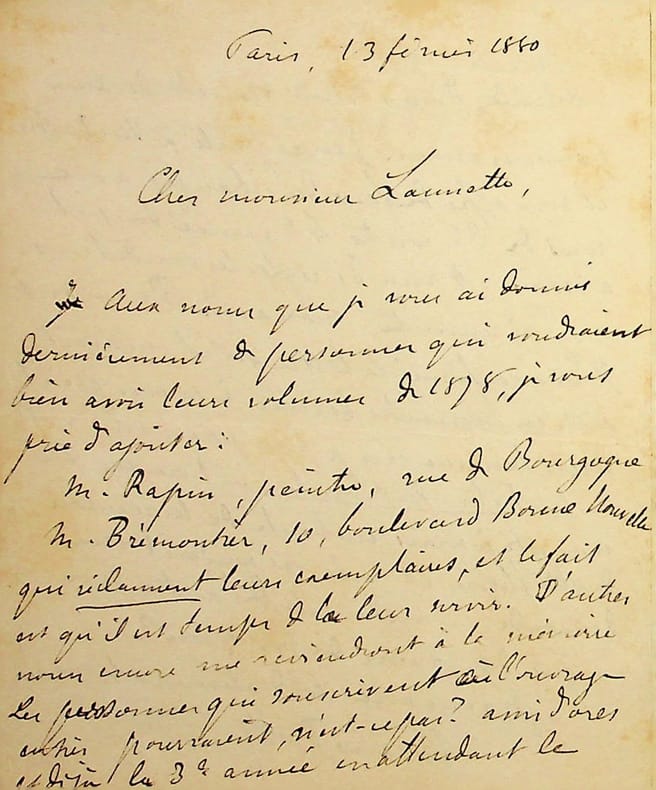 Paris, 13 février 1880
Cher monsieur Launette,
Aux noms que je vous ai donnés
dernièrement de personnes qui voudraient
bien avoir leurs volumes de 1878, je vous
prie d'ajouter :
M. Rapin, peintre, rue de Bourgogne
M. Brémontier, 10, boulevard Bonne Nouvelle
qui réclament leurs exemplaires, et le fait
est qu'il est temps de les leur servir. D'autres
noms encore me reviendront à la mémoire
Les personnes qui souscrivent à l'ouvrage
entier pourraient, n'est-ce pas ? avoir d'ores
et déjà la 3e année en attendant le